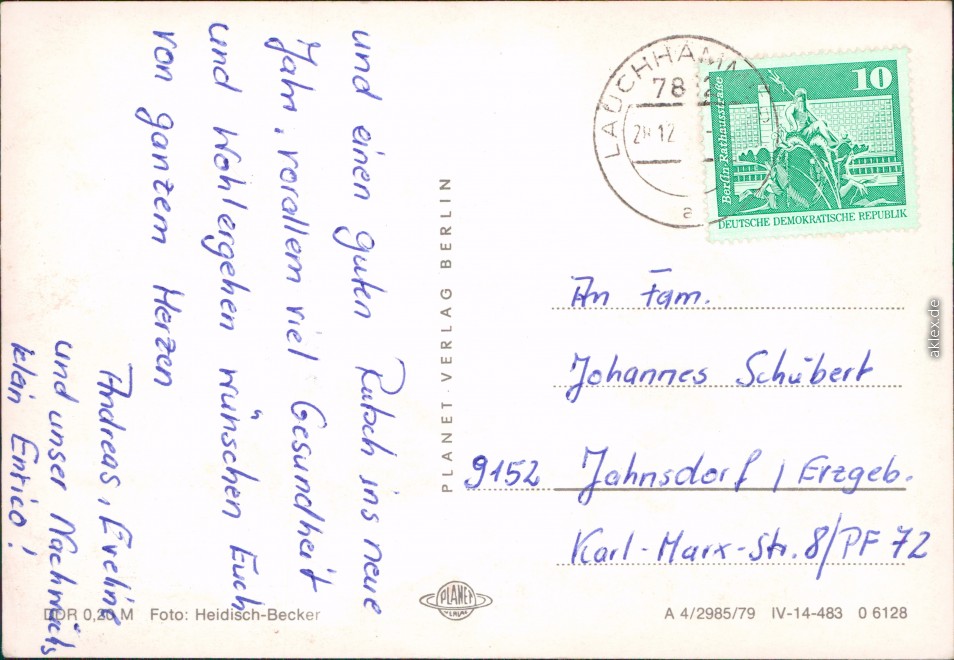 und einen guten Rutsch ins neue
Jahr, vorallem viel Gesundheit
und Wohlergehen wünschen Euch
von ganzem Herzen
Andreas, Eveline
und unser Nachwuchs
klein Enrico!
PLANET-VERLAG BERLIN
LAUCHHAMM
78
28.12
a
10
Berlin, Rathausstraße
DEUTSCHE DEMOKRATISCHE REPUBLIK
An Fam.
Johannes Schubert
9152 Jahnsdorf / Erzgeb.
Karl-Marx-Str. 8/PF 72
DDR 0,20 M Foto: Heidisch-Becker
PLANET
A 4/2985/79 IV-14-483 0 6128
aklex.de